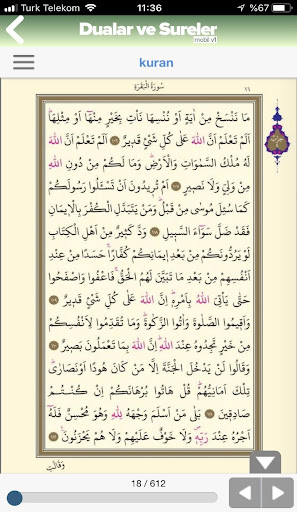 Turk Telekom 11:36 %67
Dualar ve Sureler
mobil v1
kuran
سُورَةُ الْبَقَرَةِ ١٦
مَا نَنْسَخْ مِنْ اٰيَةٍ اَوْ نُنْسِهَا نَأْتِ بِخَيْرٍ مِنْهَٓا اَوْ مِثْلِهَاۜ
اَلَمْ تَعْلَمْ اَنَّ اللّٰهَ عَلٰى كُلِّ شَيْءٍ قَد۪يرٌ ﴿١٠٦﴾ اَلَمْ تَعْلَمْ اَنَّ اللّٰهَ
لَهُ مُلْكُ السَّمٰوَاتِ وَالْاَرْضِۜ وَمَا لَكُمْ مِنْ دُونِ اللّٰهِ
مِنْ وَلِيٍّ وَلَا نَص۪يرٍ ﴿١٠٧﴾ اَمْ تُر۪يدُونَ اَنْ تَسْـَٔلُوا رَسُولَكُمْ
كَمَا سُئِلَ مُوسٰى مِنْ قَبْلُۜ وَمَنْ يَتَبَدَّلِ الْكُفْرَ بِالْا۪يمَانِ
فَقَدْ ضَلَّ سَوَٓاءَ السَّب۪يلِ ﴿١٠٨﴾ وَدَّ كَث۪يرٌ مِنْ اَهْلِ الْكِتَابِ
لَوْ يَرُدُّونَكُمْ مِنْ بَعْدِ ا۪يمَانِكُمْ كُفَّارًاۚ حَسَدًا مِنْ عِنْدِ
اَنْفُسِهِمْ مِنْ بَعْدِ مَا تَبَيَّنَ لَهُمُ الْحَقُّۚ فَاعْفُوا وَاصْفَحُوا
حَتّٰى يَأْتِيَ اللّٰهُ بِاَمْرِه۪ۜ اِنَّ اللّٰهَ عَلٰى كُلِّ شَيْءٍ قَد۪يرٌ ﴿١٠٩﴾
وَاَق۪يمُوا الصَّلٰوةَ وَاٰتُوا الزَّكٰوةَۜ وَمَا تُقَدِّمُوا لِاَنْفُسِكُمْ
مِنْ خَيْرٍ تَجِدُوهُ عِنْدَ اللّٰهِۜ اِنَّ اللّٰهَ بِمَا تَعْمَلُونَ بَص۪يرٌ ﴿١١٠﴾
وَقَالُوا لَنْ يَدْخُلَ الْجَنَّةَ اِلَّا مَنْ كَانَ هُودًا اَوْ نَصَارٰىۜ
تِلْكَ اَمَانِيُّهُمْۜ قُلْ هَاتُوا بُرْهَانَكُمْ اِنْ كُنْتُمْ
صَادِق۪ينَ ﴿١١١﴾ بَلٰى مَنْ اَسْلَمَ وَجْهَهُ لِلّٰهِ وَهُوَ مُحْسِنٌ فَلَهُٓ
اَجْرُهُ عِنْدَ رَبِّه۪ۖ وَلَا خَوْفٌ عَلَيْهِمْ وَلَا هُمْ يَحْزَنُونَ۟ ﴿١١٢﴾
وَقَالَتِ
18 / 612